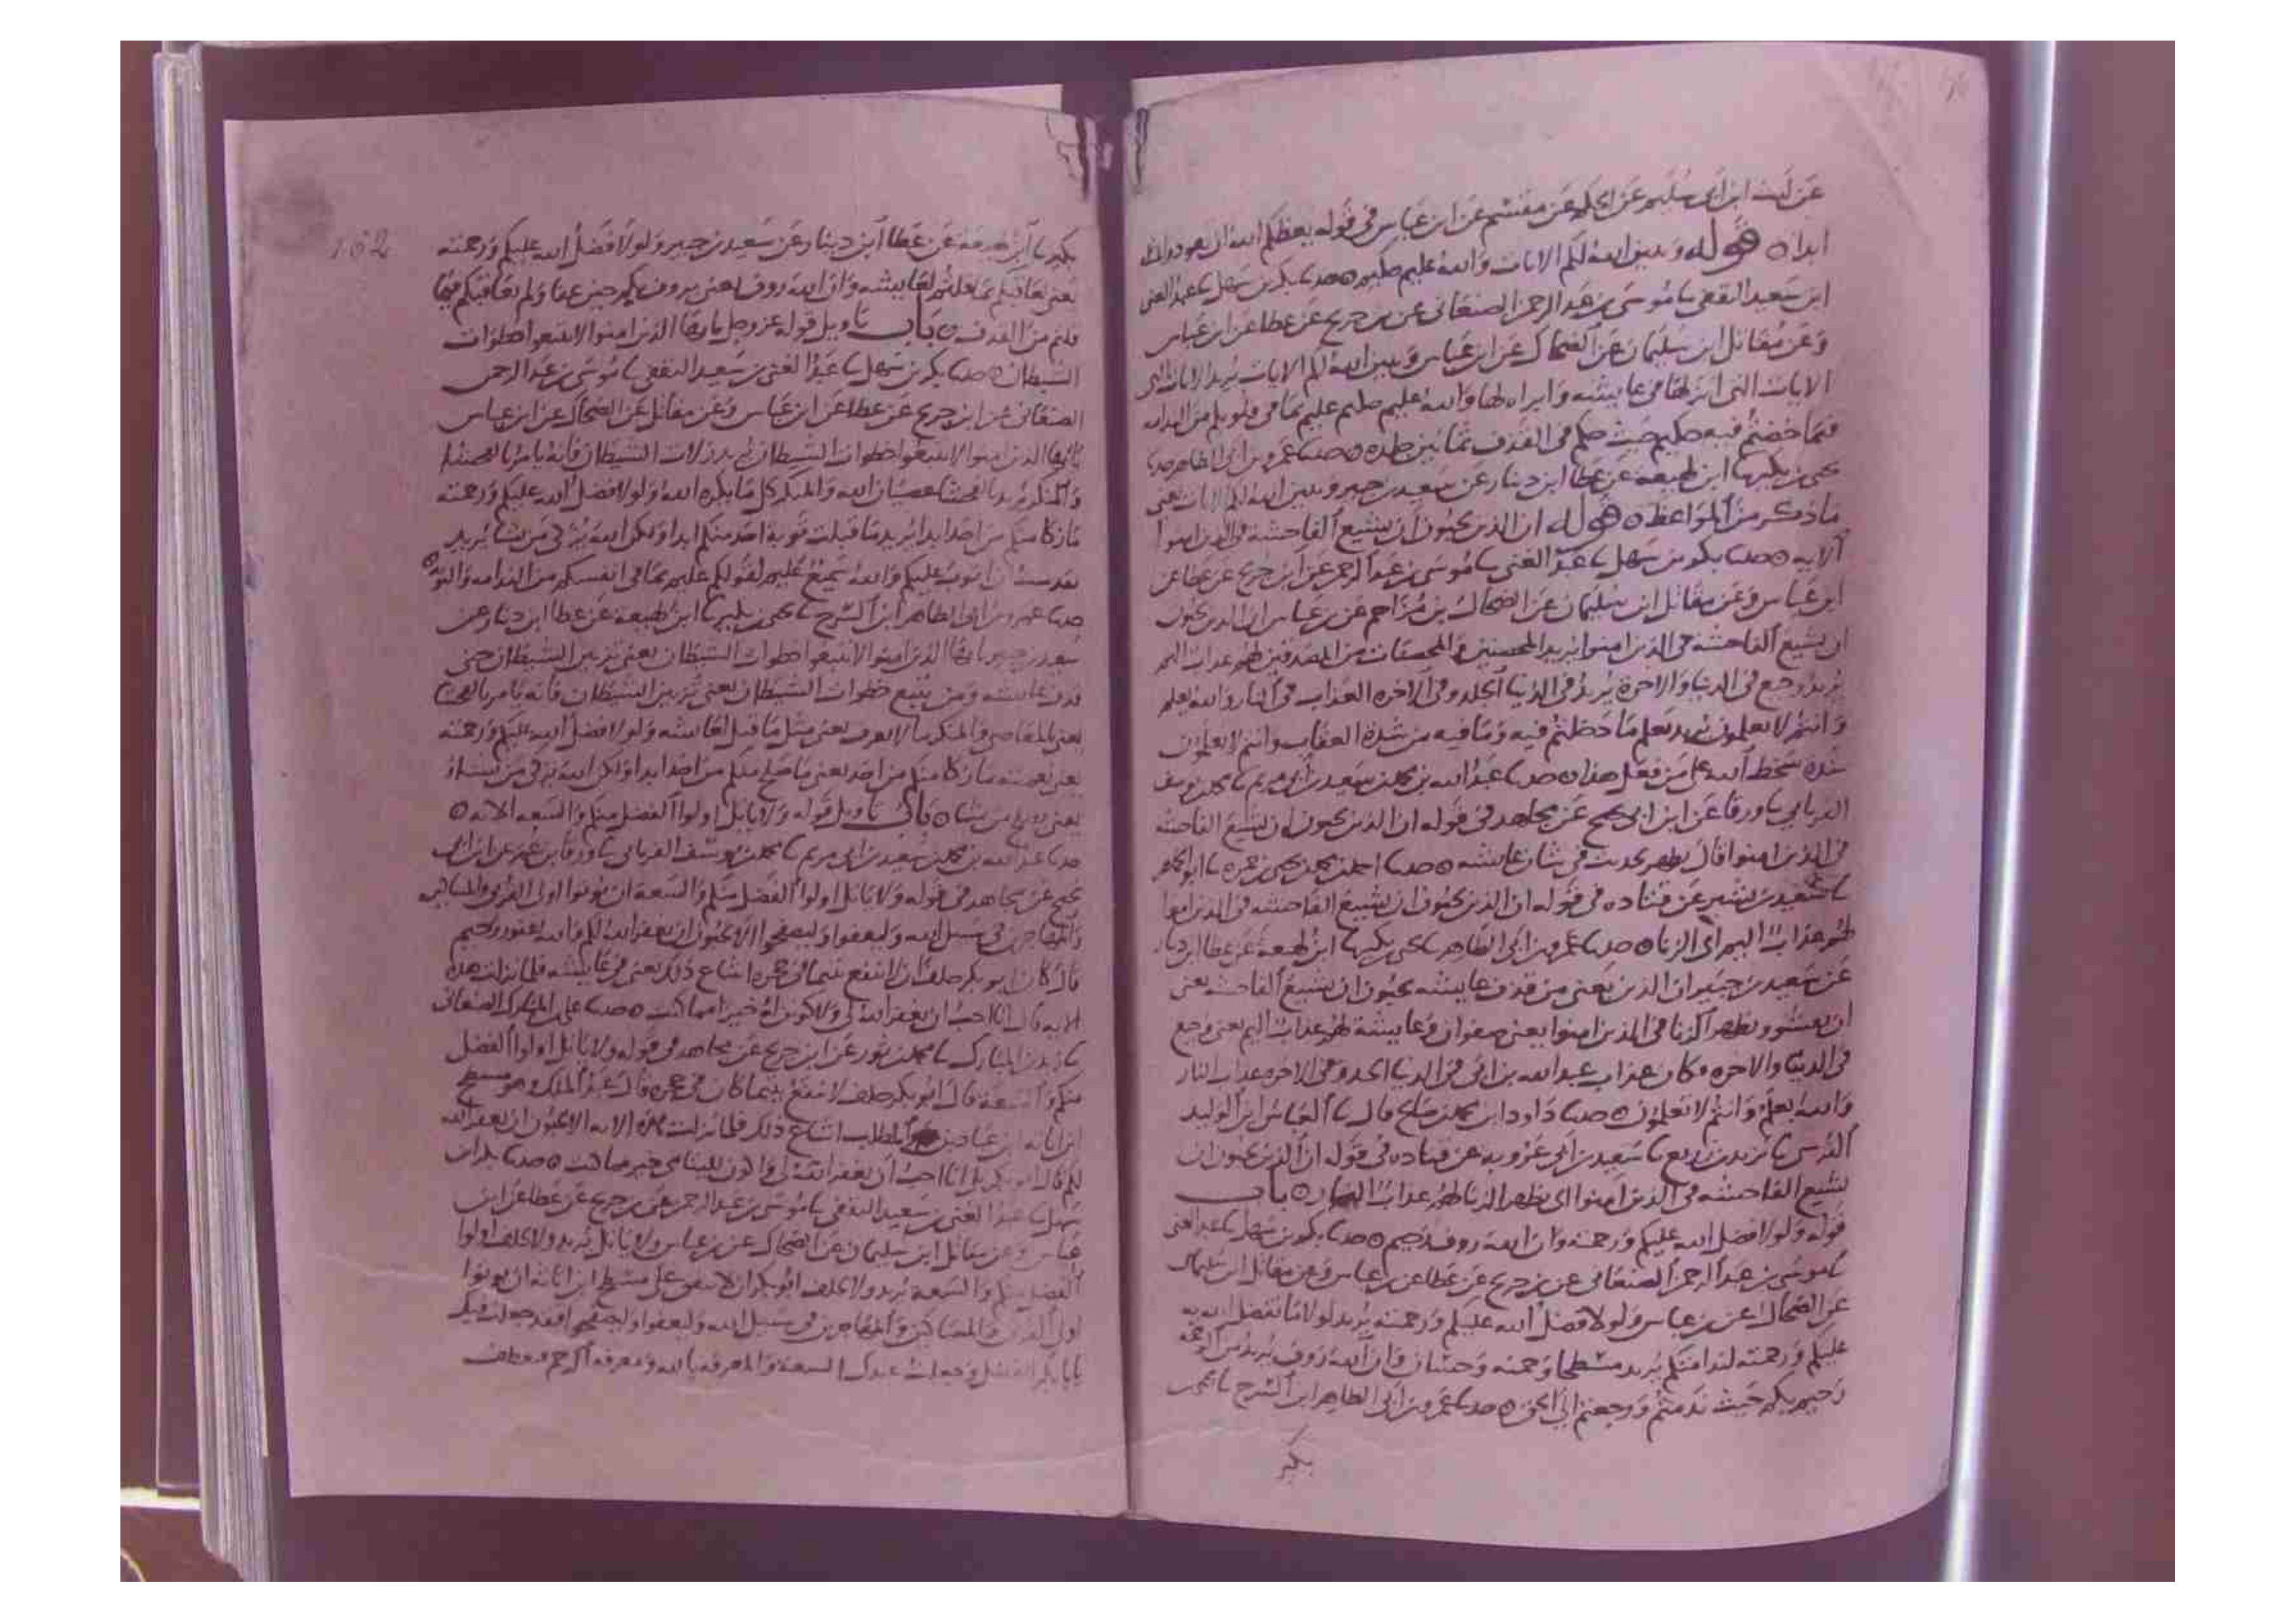 عن ليث ابن ابى سليم عن الحكم عن مقسم عن ابن عباس فى قوله يعظكم الله ان تعودوا لمثله
ابدا ه قوله ويبين الله لكم الايات والله عليم حكيم ه حدثنا بكر بن سهل ثنا عبد الغنى
ابن سعيد الثقفى ثنا موسى بن عبد الرحمن الصنعانى عن بن جريج عن عطا عن ابن عباس
وعن مقاتل ابن سليمان عن الضحاك عن ابن عباس ويبين الله لكم الايات يريد الايات
الايات التى انزلها فى عايشه وابراه لها والله عليم حكيم عليم بما فى قلوبكم من الندامه
فيما خضتم فيه حكيم حيث حكم فى القذف ثمانين جلده ه حدثنا عمرو بن ابى الطاهر
يحيى بن بكير ثنا ابن لهيعه عن عطا ابن دينار عن سعيد بن جبير ويبين الله لكم الايات يعنى
ما ذكر من المواعظ ه قوله ان الذين يحبون ان تشيع الفاحشه فى الذين امنوا
الايه ه حدثنا بكر بن سهل ثنا عبد الغنى ثنا موسى بن عبد الرحمن عن ابن جريج عن عطا عن
ابن عباس وعن مقاتل ابن سليمان عن الضحاك بن مزاحم عن بن عباس ان الذين يحبون
ان تشيع الفاحشه فى الذين امنوا يريد المحصنين والمحصنات من المصدقين لهم عذاب اليم
يريد وجع فى الدنيا والاخرة يريد فى الدنيا الجلد وفى الاخره العذاب فى النار والله يعلم
وانتم لا تعلمون يريد تعلم ما دخلتم فيه وما فيه من شدة العقاب وانتم لا تعلمون
شده سخط الله على من فعل هذا ه حدثنا عبد الله بن محمد بن سعيد بن ابى مريم ثنا محمد بن يوسف
الفريابى ثنا ورقا عن ابن ابى نجيح عن مجاهد فى قوله ان الذين يحبون ان تشيع الفاحشه
فى الذين امنوا قال يظهر يحدث فى شان عايشه ه حدثنا احمد بن محمد بن يحيى بن حمزه ثنا ابو الجماهر
ثنا سعيد بن بشير عن قتاده فى قوله ان الذين يحبون ان تشيع الفاحشه فى الذين امنوا
لهم عذاب اليم اى الزنا ه حدثنا عمرو بن ابى الطاهر ثنا يحيى بن بكير ثنا ابن لهيعة عن عطا ابن دينار
عن سعيد بن جبير ان الذين يعنى من قذف عايشه يحبون ان تشيع الفاحشه يعنى
ان يفشو ويظهر الزنا فى الذين امنوا يعنى صفوان وعايشة لهم عذاب اليم يعنى وجع
فى الدنيا والاخره فكان عذاب عبد الله بن ابى فى الدنيا الحد وفى الاخره عذاب النار
والله يعلم وانتم لا تعلمون ه حدثنا داود ابن محمد بن صالح قال ثنا العباس ابن الوليد
النرسى ثنا يزيد بن زريع ثنا سعيد بن ابى عروبه عن قتاده فى قوله ان الذين يحبون ان
تشيع الفاحشه فى الذين امنوا اى يظهر الزنا لهم عذاب اليم ه باب
قوله ولولا فضل الله عليكم ورحمته وان الله روف رحيم ه حدثنا بكر بن سهل ثنا عبد الغنى
ثنا موسى بن عبد الرحمن الصنعانى عن بن جريج عن عطا عن بن عباس وعن مقاتل ابن سليمان
عن الضحاك عن بن عباس ولولا فضل الله عليكم ورحمته يريد لولا ما تفضل الله به
عليكم ورحمته لندامتكم يريد مسطحا وحمنه وحسان وان الله روف يريد من الرحمة
رحيم بكم حيث ندمتم ورجعتم الى الحق ه حدثنا عمرو بن ابى الطاهر ابن السرح ثنا يحيى
بكير
162
بكير ثنا ابن لهيعة عن عطا ابن دينار عن سعيد بن جبير ولولا فضل الله عليكم ورحمته
يعنى لعاقبكم بما قلتم لعايشه وان الله روف يعنى يروف بكم حين عفا ولم يعاقبكم فيما
قلتم من القذف ه باب تاويل قوله عز وجل يايها الذين امنوا لا تتبعوا خطوات
الشيطان ه حدثنا بكر بن سهل ثنا عبد الغنى بن سعيد الثقفى ثنا موسى بن عبد الرحمن
الصنعانى عن ابن جريج عن عطا عن ابن عباس وعن مقاتل عن الضحاك عن ابن عباس
يايها الذين امنوا لا تتبعوا خطوات الشيطان يريد زلات الشيطان فانه يامر بالفحشا
والمنكر يريد بالفحشا عصيان الله والمنكر كل ما يكره الله ولولا فضل الله عليكم ورحمته
ما زكا منكم من احد ابدا يريد ما قبلت توبة احد منكم ابدا ولكن الله يزكى من يشا يريد
فقد شئت ان اتوب عليكم والله سميع عليم لقولكم عليم بما فى انفسكم من الندامه والتوبه
حدثنا عمرو بن ابى الطاهر ابن السرح ثنا يحيى بن بكير ثنا ابن لهيعة عن عطا ابن دينار عن
سعيد بن جبير يايها الذين امنوا لا تتبعوا خطوات الشيطان يعنى تزيين الشيطان حتى
قذف عايشه ومن يتبع خطوات الشيطان يعنى تزيين الشيطان فانه يامر بالفحشا
يعنى بالمعاصى والمنكر ما لا يعرف يعنى مثل ما قيل لعايشه ولولا فضل الله عليكم ورحمته
يعنى نعمته ما زكا منكم من احد يعنى ما صلح منكم من احد ابدا ولكن الله يزكى من يشاء
يعنى يصلح من يشا ه باب تاويل قوله ولا ياتل اولوا الفضل منكم والسعه الايه ه
حدثنا عبد الله بن محمد بن سعيد بن ابى مريم ثنا محمد بن يوسف الفريابى ثنا ورقا بن عمر عن ابن ابى
نجيح عن مجاهد فى قوله ولا ياتل اولوا الفضل منكم والسعه ان يوتوا اولى القربى والمساكين
والمهاجرين فى سبيل الله وليعفوا وليصفحوا الا تحبون ان يغفر الله لكم والله غفور رحيم
قال كان ابو بكر حلف ان لا ينفع يتيما فى حجره اشاع ذلك يعنى فى عايشه فلما نزلت هذه
الايه قال انا احب ان يغفر الله لى ولاكونن له خير مما كنت ه حدثنا على ابن المبارك الصنعانى
ثنا زيد بن المبارك ثنا محمد بن ثور عن ابن جريج عن مجاهد فى قوله ولا ياتل اولوا الفضل
منكم والسعة قال ابو بكر حلف لا ينفع يتيما كان فى حجره قال عبد الملك وهو مسطح
ابن اثاثه ابن عباد بن المطلب اشاع ذلك فلما نزلت هذه الايه الا تحبون ان يغفر الله
لكم قال ابو بكر بلى انا احب ان يغفر الله لى خير ما كنت ه حدثنا بكر ابن
سهل ثنا عبد الغنى بن سعيد الثقفى ثنا موسى بن عبد الرحمن عن بن جريج عن عطا عن ابن
عباس وعن مقاتل ابن سليمان عن الضحاك عن بن عباس ولا ياتل يريد ولا يحلف اولوا
الفضل منكم والسعه يريد ولا يحلف ابو بكر ان لا ينفق على مسطح ابن اثاثه ان يوتوا
اولى القربى والمساكين والمهاجرين فى سبيل الله وليعفوا وليصفحوا فقد جعلت فيك
يابا بكر الفضل وجعلت عندك السعة والمعرفه بالله